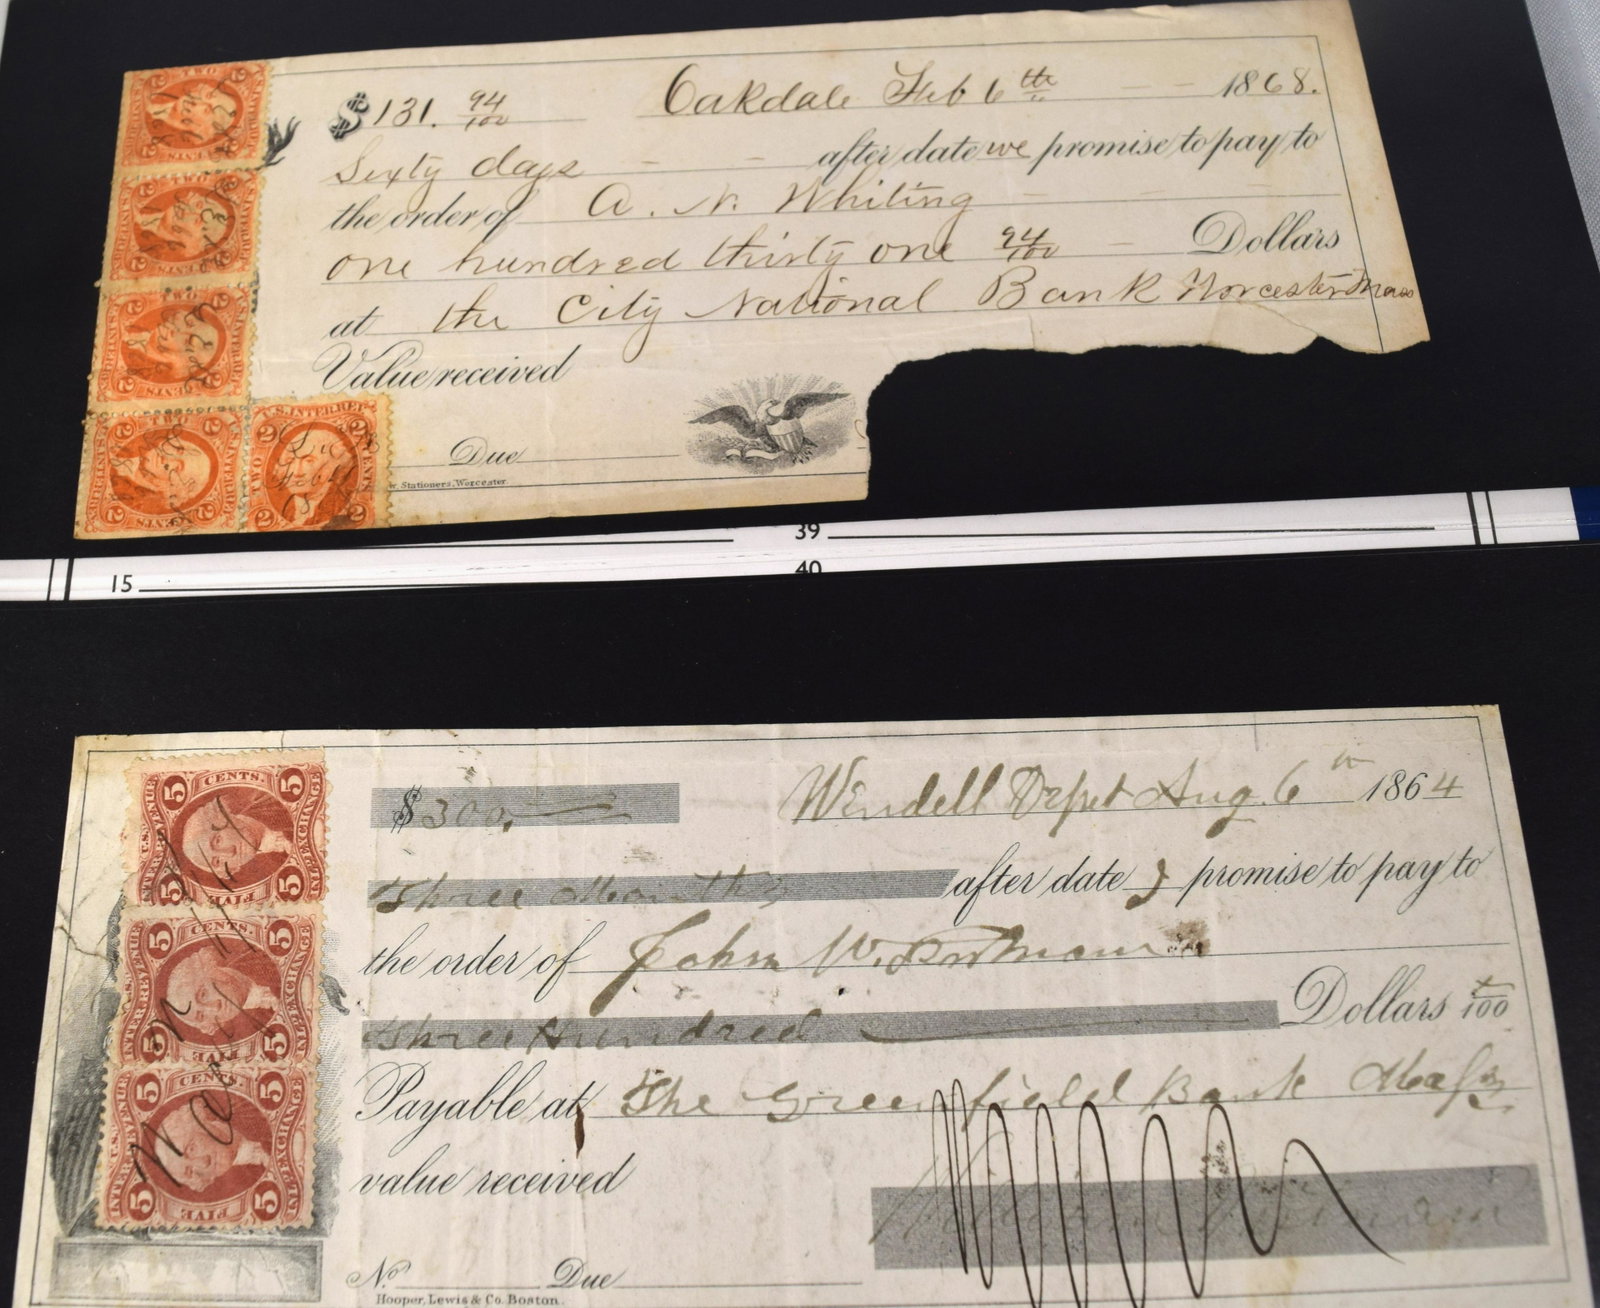 $131. 94/100 Oakdale Feb 6th 1868.
Sixty days after date we promise to pay to
the order of A. N. Whiting
one hundred thirty one 94/100 Dollars
at the City National Bank Worcester Mass
Value received
Due
Stationers, Worcester.
TWO CENTS
U.S. INTER. REV.
2
39
40
15
$300. Wendell Depot Aug. 6 1864
Three Months after date I promise to pay to
the order of John W.
Three Hundred Dollars /100
Payable at The Greenfield Bank Mass
value received
No. Due
Hooper, Lewis & Co. Boston.
5 CENTS. 5
U.S. INTER. REVENUE
INL. EXCHANGE
FIVE